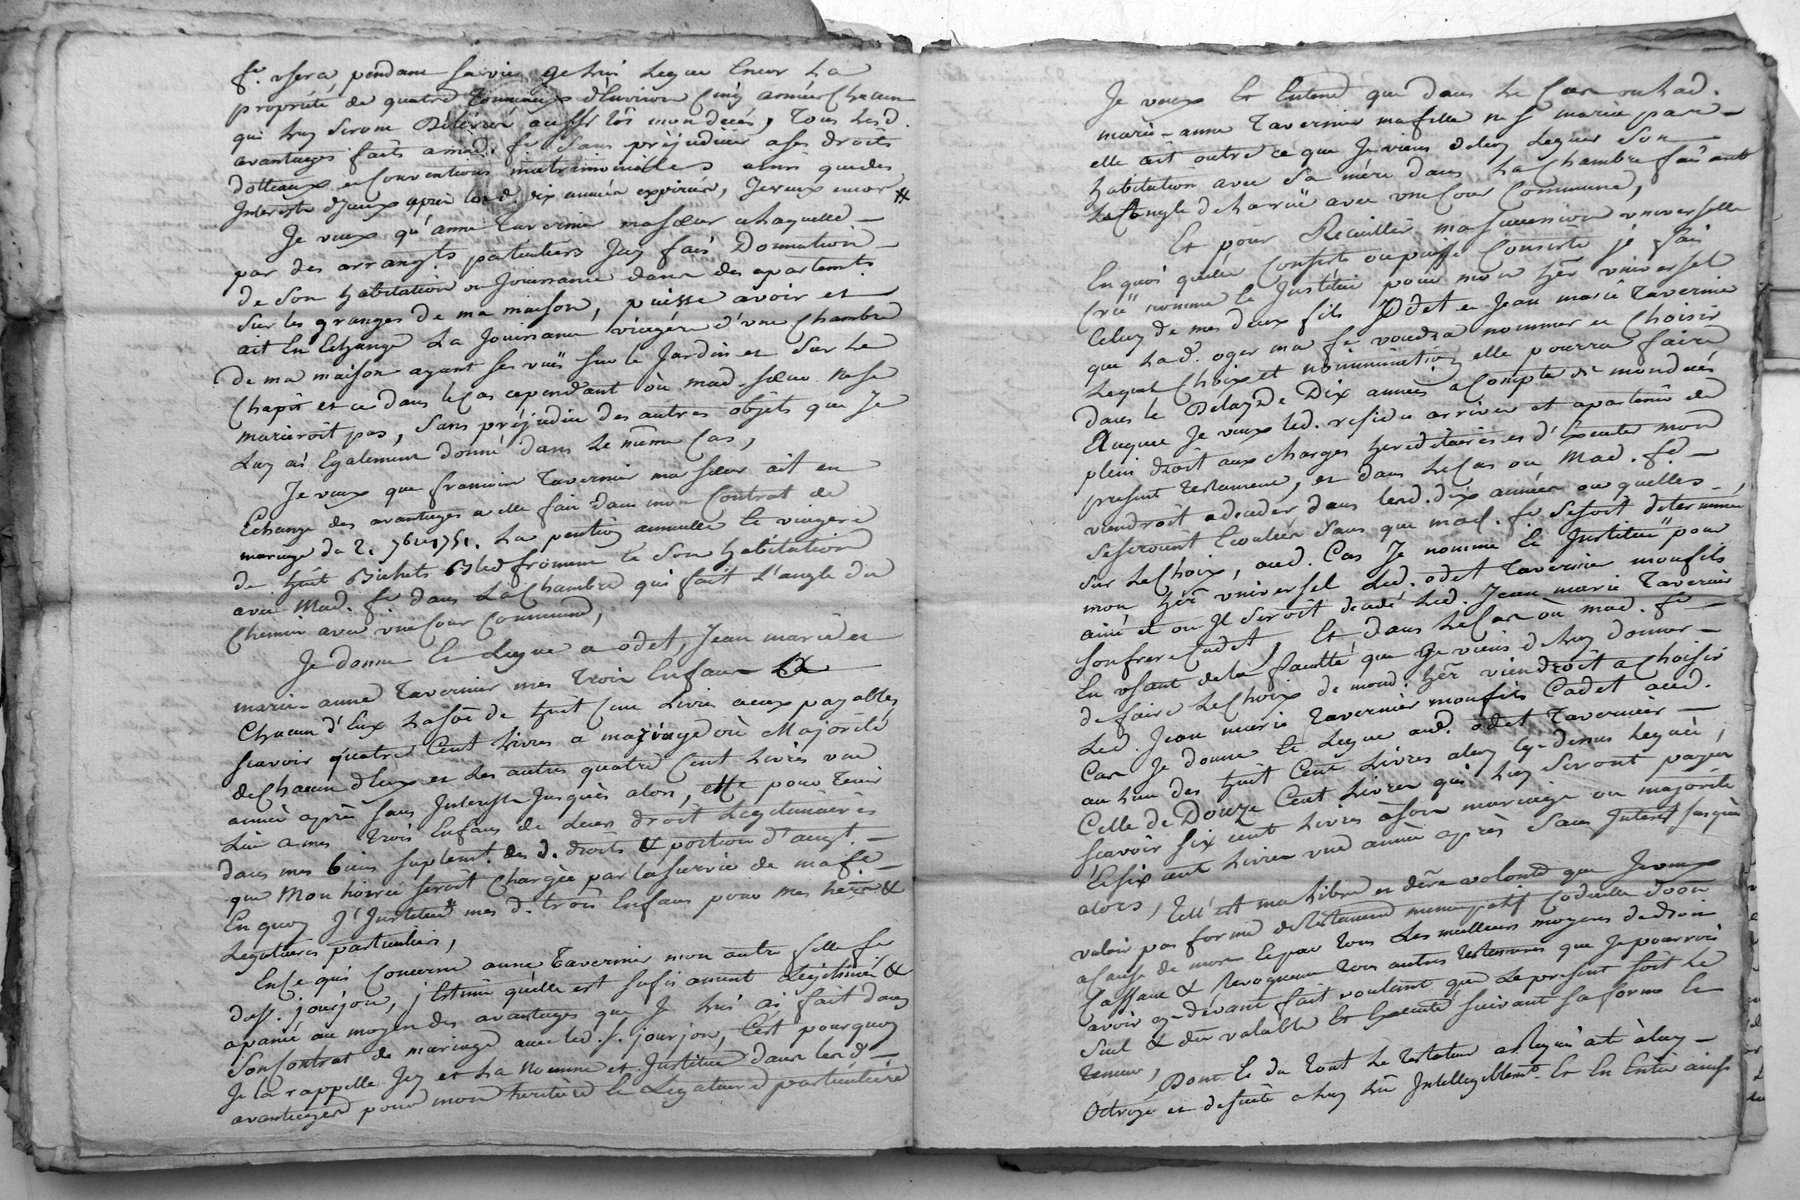 fe. usera pendant sa vie, Je luy legue Encor La
propriété de quatre Tonneaux d'Environ Cinq anées Chacun
qui luy seront Délivré aussi tôs mon decès, Tous lesd.
avantages fais a mad. fe. sans préjudicier a ses droits
dotteaux et Conventions matrimonialles ainsi que des
Interests d'Iceux après lesd. dix année expirées, Je veux encor
Je veux qu'anne Tavernier ma sœur a Laquelle
par des arrangts. particuliers J'ay fais Donnation
de son habitation et Jouissance dans des apartemts.
sur les granges de ma maison, puisse avoir et
ait En Echange La Jouissance viagère d'une Chambre
de ma maison ayant ses vuës sur le Jardin et sur Le
Chapit et ce dans le Cas cependant où mad. sœur ne se
marieroit pas, sans préjudice des autres objets que Je
Luy ai Egalement donné dans Le même Cas,
Je veux que francoise Tavernier ma sœur ait en
Echange des avantages a elle fais dans mon Contrat de
mariage du 2. 7bre 1751. La pention annuelle et viagere
de huit Bichets Bled froment et son habitation
avec Mad. fe. dans La Chambre qui fait L'angle du
Chemin avec une Cour Commune,
Je donne Et Legue a odet, Jean marie et
marie-anne Tavernier mes trois Enfans
Chacun d'Eux La soe. de huit Cent Livres a eux payables
scavoir quatre Cent Livres a mariage où Majorité
de Chacun d'Eux et Les autres quatre Cent Livres une
année après sans Interest Jusques alors, et ce pour tenir
Lieu a mes trois Enfans de Leurs droit Legitimaires
dans mes biens suplemt. des d. droits & portion d'augt.
que Mon hoirie seroit Chargée par la survie de ma fe.
En quoy J'Institue mes d. trois Enfans pour mes her. &
Legataires particuliers,
En Ce qui Concerne anne Tavernier mon autre fille fe.
du sr. jourjon, j'Estime qu'elle est sufisament Legitimée &
apanée au moyen des avantages que Je lui ai fait dans
son Contrat de mariage avec led. sr. jourjon, C'est pourquoy
Je la rappelle Icy et La Nomme et Institue dans lesd.
avantages pour mon heritiere Et Legataire particuliere
Je veux Et Entend que dans Le Cas ou Lad.
marie-anne Tavernier ma fille ne se mariera pas
elle ait outre ce que Je viens de luy Leguer son
habitation avec sa mère dans La Chambre faisant
L'angle de La ruë avec une Cour Commune,
Et pour Recueillir ma succession universelle
En quoi qu'elle Consiste ou puisse Consister je fais
Créé nomme Et Institue pour mon her. universel
Celuy de mes deux fils Odet et Jean marie Tavernier
que Lad. oger ma fe. voudra nommer et Choisir
Lequel Choix et nommination elle pourra faire
dans le Délay de Dix années a Compter de mon decès
Auquel Je veux led. residu arriver et apartenir de
plein droit aux charges hereditaires et d'Executer mon
present testament, et dans le Cas ou Mad. fe.
viendroit a deceder dans lesd. dix années ou quelles
se seroient Ecoulées sans que mad. fe. se soit determinée
sur Le Choix, aud. Cas Je nomme Et Institue pour
mon her. universel Led. odet Tavernier mon fils
ainé et ou Il seroit decedé Led. Jean marie Tavernier
son frere Cadet, Et dans Le Cas où mad. fe.
En usant de la faculté que Je viens de luy donner
de faire Le Choix de mond. her. viendroit a Choisir
Led. Jean marie Tavernier mon fils Cadet aud.
Cas Je donne Et Legue aud. odet Tavernier
au lieu des huit Cent Livres a luy Cy-dessus Leguée,
Celle de Douze Cent Livres qui luy seront payée
scavoir six cent Livres a son mariage ou majorité
& Les six cent Livres une année après sans Interest jusques
alors, Tell'est ma Libre et dere. volonté que Je veux
valoir par forme de testament nuncupatif Codicille donation
a cause de mort et par tous les meilleurs moyens de droit
Cassant & revoquant tous autres testamens que Je pourrois
avoir cy-devant fait voulant que Le présent soit Le
seul & dere. valable Et Executé suivant sa forme Et
teneur,
Dont Et du tout Le testateur a requis acte a luy
Octroyé et desuite a luy Lû Intelligiblemt. Et En Entier ainsi